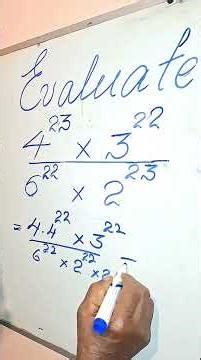 Evaluate
4^23 × 3^22
6^22 × 2^23
= 4.4^22 × 3^22
6^22 × 2^22 × 2